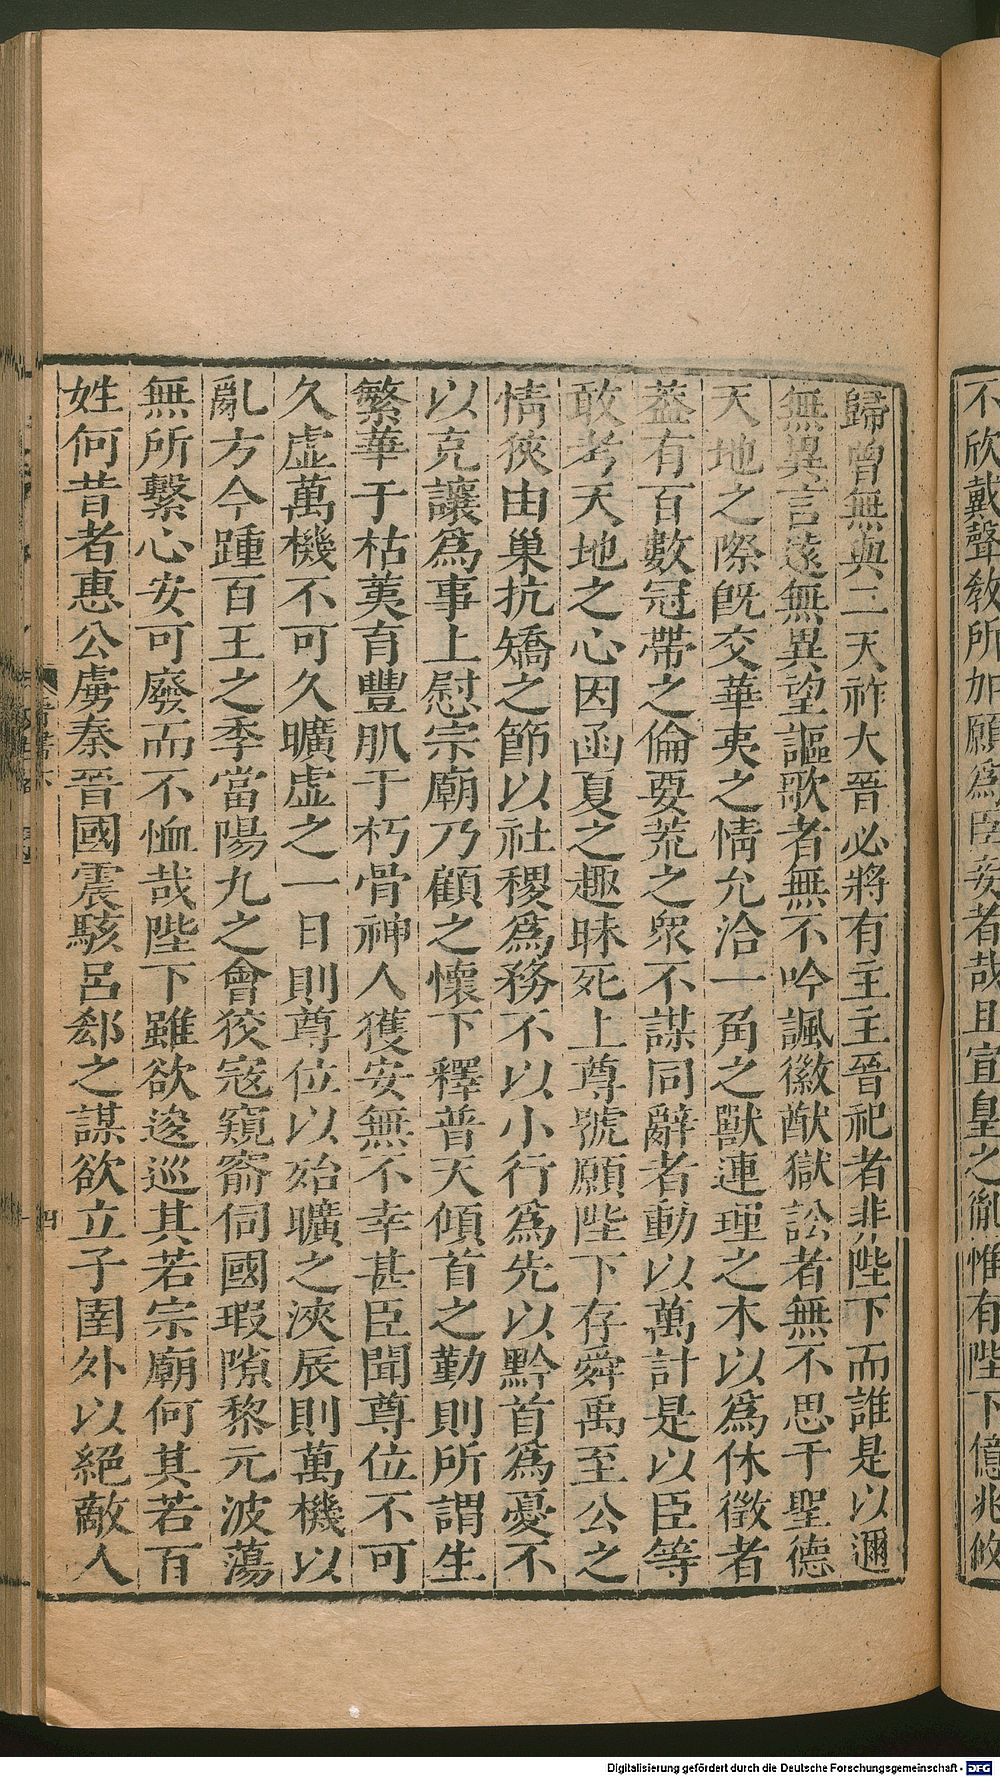 不欣戴聲敎所加願爲臣妾者哉且宣皇之胤惟有陛下億兆攸
歸曾無與二天祚大晉必將有主主晉祀者非陛下而誰是以邇
無異言遠無異望謳歌者無不吟諷徽猷獄訟者無不思于聖德
天地之際旣交華夷之情允洽一角之獸連理之木以爲休徵者
蓋有百數冠帶之倫要荒之衆不謀同辭者動以萬計是以臣等
敢考天地之心因函夏之趣昧死上尊號願陛下存舜禹至公之
情狹由巢抗矯之節以社稷爲務不以小行爲先以黔首爲憂不
以克讓爲事上慰宗廟乃顧之懷下釋普天傾首之勤則所謂生
繁華于枯荑育豐肌于朽骨神人獲安無不幸甚臣聞尊位不可
久虛萬機不可久曠虛之一日則尊位以殆曠之浹辰則萬機以
亂方今踵百王之季當陽九之會狡寇窺窬伺國瑕隙黎元波蕩
無所繫心安可廢而不恤哉陛下雖欲逡巡其若宗廟何其若百
姓何昔者惠公虜秦晉國震駭呂郄之謀欲立子圉外以絕敵人
晉書六
四
Digitalisierung gefördert durch die Deutsche Forschungsgemeinschaft - DFG